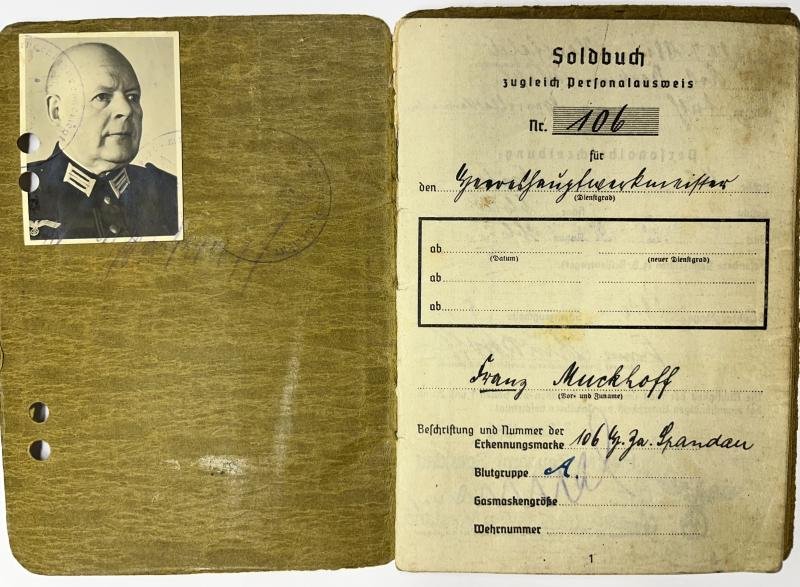 Soldbuch
zugleich Personalausweis
Nr. 106
für
den Heereshauptwerkmeister
(Dienstgrad)
ab
(Datum) (neuer Dienstgrad)
ab
ab
Franz Muckhoff
(Vor- und Zuname)
Beschriftung und Nummer der
Erkennungsmarke 106 Spandau
Blutgruppe A.
Gasmaskengröße
Wehrnummer
1